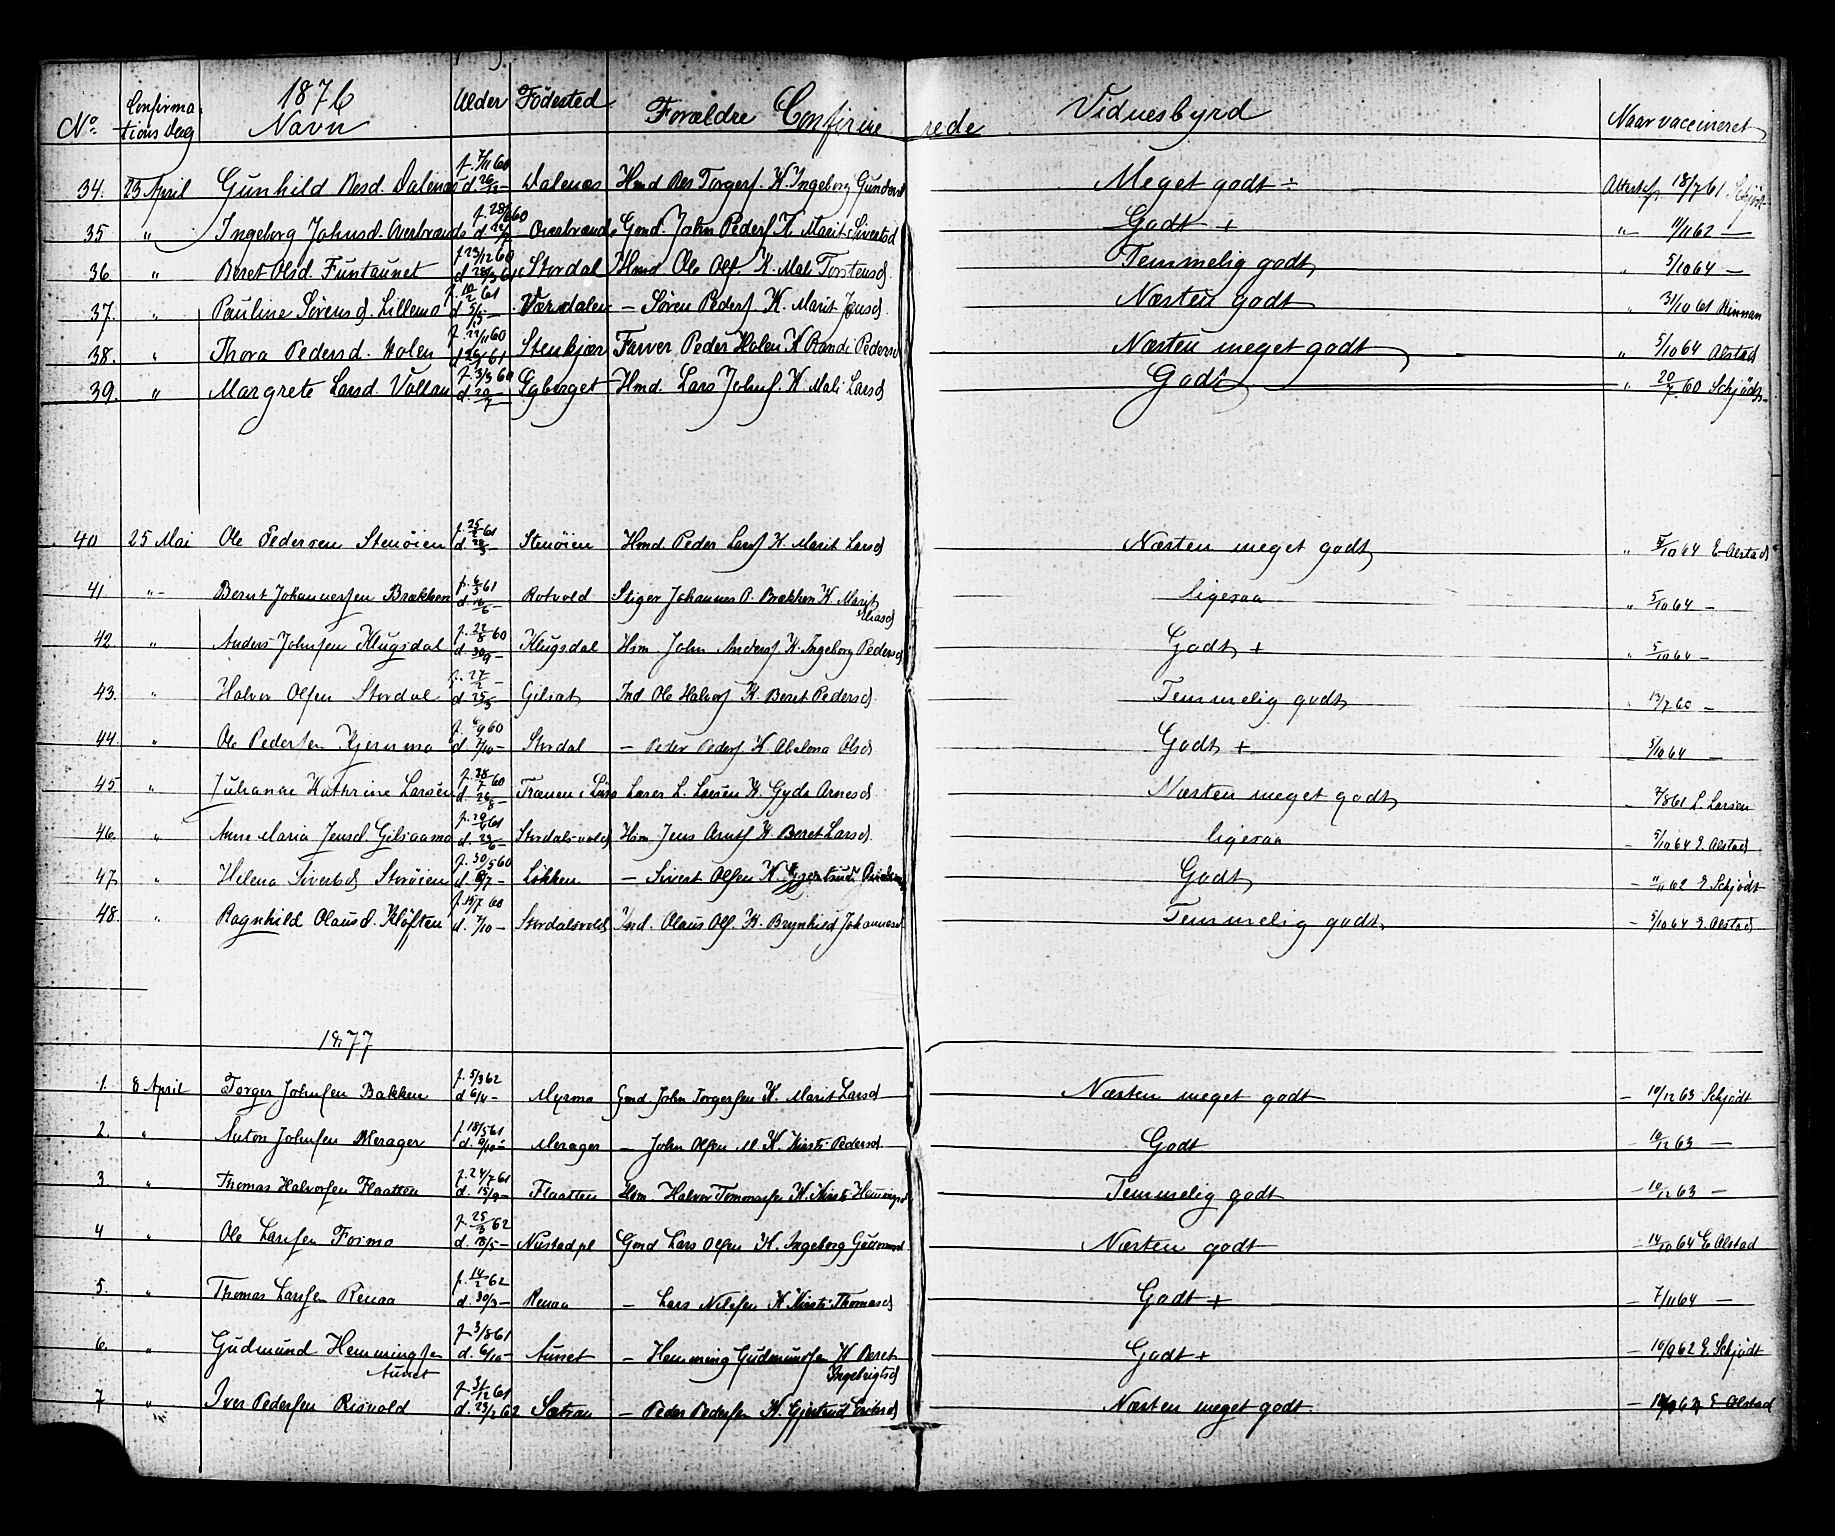 1876
No. Confirmations Dag Navn Alder Födested Forældre Confirmerede Vidnesbyrd Naar vaccineret
34. 23 April Gunhild Besd. Dalenæs f. 7/11 60 d. 26/12 — Dalenæs Hmd Bes Torgers. K. Ingeborg Gundersd Meget godt ÷ Attest 18/7 61 Schjødt
35 " Ingeborg Johnsd. Overbrænde f. 28/6 60 d. 22/7 — Overbrænde Gmd. John Peders. K. Marit Sivertsd Godt + " 11/11 62 —
36 " Beret Olsd. Funtaunet f. 23/12 60 Stordal Hmd Ole Ols. K. Mali Torstensd. Temmelig godt " 5/10 64 —
37. " Pauline Sörensd. Lillemo 61 Værdalen — Sören Peders. K. Marit Jensd. Næsten godt " 31/10 61 Rinnan
38. " Thora Pedersd. Holen f. 22/11 60 Stenkjær Farver Peder Holen K Randi Pedersd Næsten meget godt " 5/10 64 Alstad
39. " Margrete Larsd. Vollan f. 3/3 60 d. 20/7 — Hmd. Lars Johns. K. Mali Larsd Godt " 20/7 60 Schjødt
40 25 Mai Ole Pedersen Stenöien f. 25/2 61 Stenöien Hmd. Peder Lars. K. Marit Larsd Næsten meget godt " 5/10 64 E Alstad
41 " - Bernt Johannessen Brækken f. 6/3 61 d. 16/6 — Rotvold Stiger Johannes O. Brækken K. Marit Eliasd ligesaa " 5/10 64 —
42. " Anders Johnsen Klugsdal f. 22/8 60 d. 30/9 — Klugsdal Hsm. John Anders. K. Ingeborg Pedersd Godt + " 5/10 64 —
43. " Halvor Olsen Stordal f. 27/2 — d. 25/3 Gilsat Ind Ole Halvors. K. Beret Pedersd. Temmelig godt " 13/7 60 —
44. " Ole Pedersen Kjernmo f. 6/9 60 d. 7/10 — Stordal — Peder Peders. K. Abelona Olsd Godt + — 5/10 64 —
45 " Julianne Kathrine Larsen f. 28/7 60 d. 26/8 — Lærer L. Larsen K. Gyda Arnesd. Næsten meget godt — 7/8 61 L. Larsen
46. " Anne Maria Jensd. Gilsaamo f. 20/4 61 d. 23/6 — Stordalsvold Hsm. Jens Arnts. K. Beret Larsd. ligesaa — 5/10 64 E. Alstad
47. " Helena Sivertsd Storöien f. 30/5 60 d. 8/7 — Lökken — Sivert Olsen K. Gjertrud Godt — 11/11 62 E Schjödt
48. " Ragnhild Olausd. Klöften f. 15/7 60 d. 7/10 — Stordalsvold Ind. Olaus Ols. K. Brynhild Johannesd Temmelig godt — 5/10 64 E. Alstad
1877
1. 8 April Torger Johnsen Bakken f. 5/3 62 d. 6/4 — Myrmo Gmd John Torgersen K. Marit Larsd Næsten meget godt — 10/12 63 Schjödt
2. " Anton Johnsen Merager f. 18/5 61 d. 9/10 — Merager — John Olsen M. K. Kirsti Pedersd. Godt — 10/12 63 —
3 " Thomas Halvorsen Flaatten f. 24/7 61 d. 15/9 — Flaatten Hsm. Halvor Tommasen K. Kirsti Hemingsd Temmelig godt — 10/12 63 —
4 " Ole Larssen Formo f. 25/3 62 d. 18/5 — Nustadpl Gmd Lars Olsen K. Ingeborg Gudmundsd Næsten godt — 14/10 64 E Alstad
5. " Thomas Larssen Renaa f. 14/2 62 d. 30/3 — Renaa — Lars Nilssen K. Kirsti Thomasd Godt + — 7/11 64 —
6. " Gudmund Hemmingsen Aunet f. 3/8 61 d. 6/10 — Aunet — Hemming Gudmundsen K. Beret Ingebrigtsd Godt + — 10/9 62 E. Schjödt
7 " Iver Pedersen Risvold f. 3/12 61 d. 23/2 62 Sætran — Peder Pedersen K. Gjertrud Næsten meget godt — E Alstad